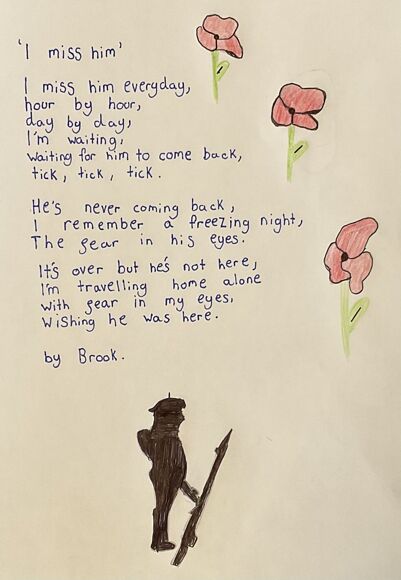 'I miss him'
I miss him everyday,
hour by hour,
day by day,
I'm waiting,
waiting for him to come back,
tick, tick, tick.
He's never coming back,
I remember a freezing night,
The fear in his eyes.
It's over but he's not here,
I'm travelling home alone
with fear in my eyes,
Wishing he was here.
by Brook.